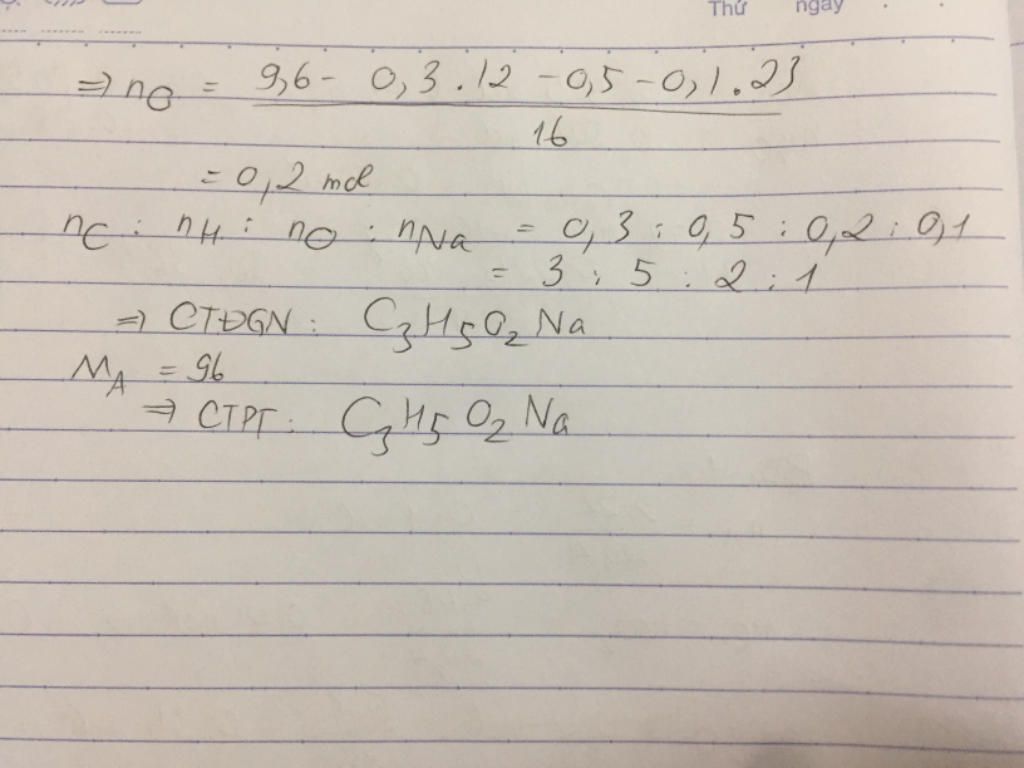 Thứ ngày
=> nO = 9,6 - 0,3.12 - 0,5 - 0,1.23
16
= 0,2 mol
nC : nH : nO : nNa = 0,3 : 0,5 : 0,2 : 0,1
= 3 : 5 : 2 : 1
=> CTĐGN : C3H5O2Na
MA = 96
=> CTPT : C3H5O2Na